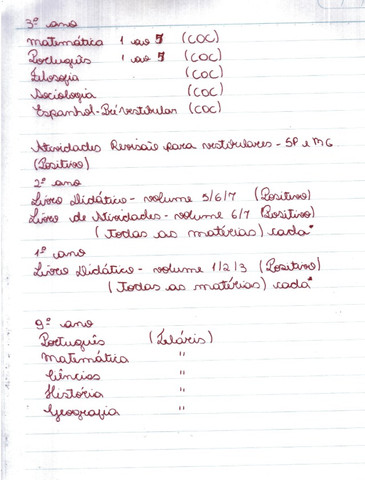 3º ano
Matemática 1 ao 5 (COC)
Português 1 ao 5 (COC)
Filosofia (COC)
Sociologia (COC)
Espanhol - Pré vestibular (COC)
Atividades Revisão para vestibulares - SP e MG
(Positivo)
2º ano
Livro Didático - volume 5/6/7 (Positivo)
Livro de Atividades - volume 6/7 Positivo)
(Todas as matérias) cada
1º ano
Livro Didático - volume 1/2/3 (Positivo)
(Todas as matérias) cada
9º ano
Português (Teláris)
Matemática "
Ciências "
História "
Geografia "